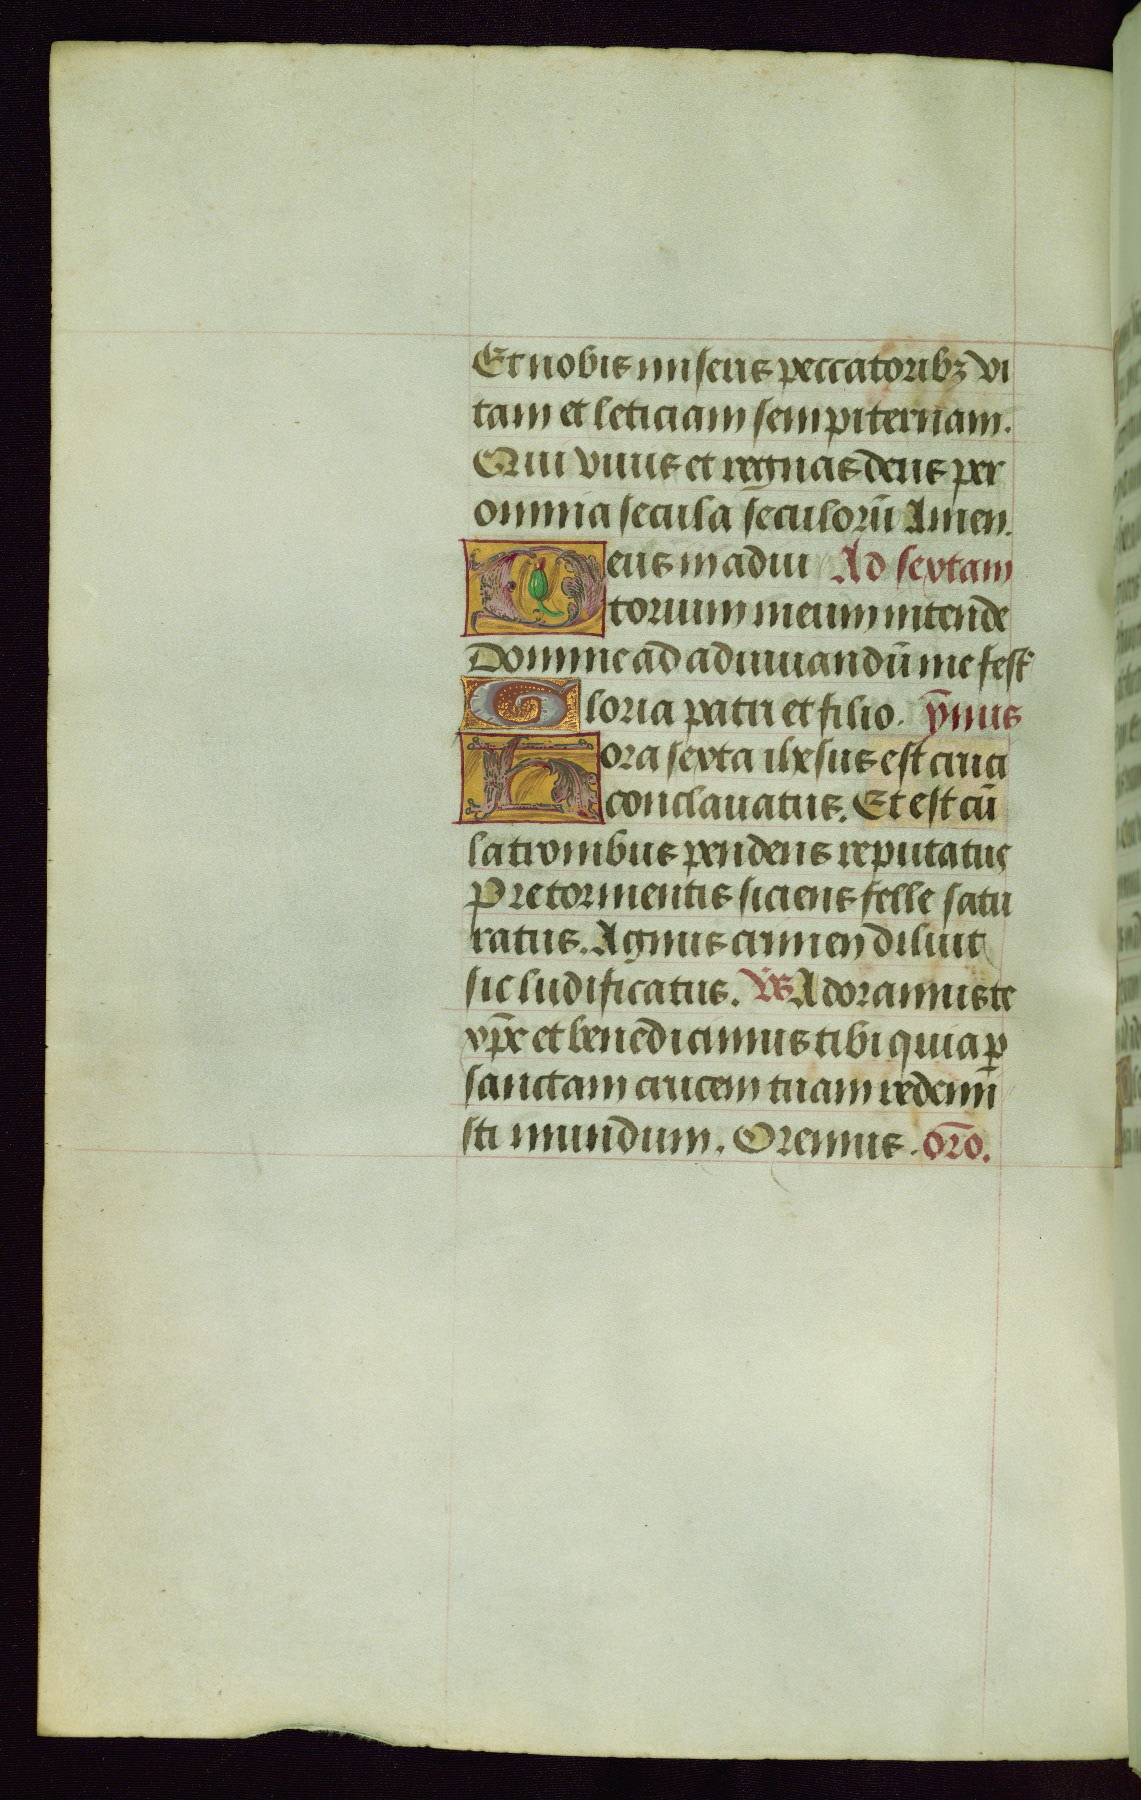 Et nobis miseris peccatoribꝫ vi
tam et leticiam sempiternam.
Qui viuis et regnas deus per
omnia secula seculoꝝ̄ Amen.
Deus in adiu Ad sextam
torium meum intende
Domine ad adiuuandū me fest̄
Gloria patri et filio. ȳmus
Hora sexta ihesus est cruci
conclauatus. Et est cū
latronibus pendens reputatus
Pre tormentis siciens felle satu
ratus. Agnus crimen diluit
sic ludificatus. V̄s Adoramus te
xp̄e et benedicimus tibi quia ꝑ
sanctam crucem tuam redemi
sti mundum. Oremus. or̄o.